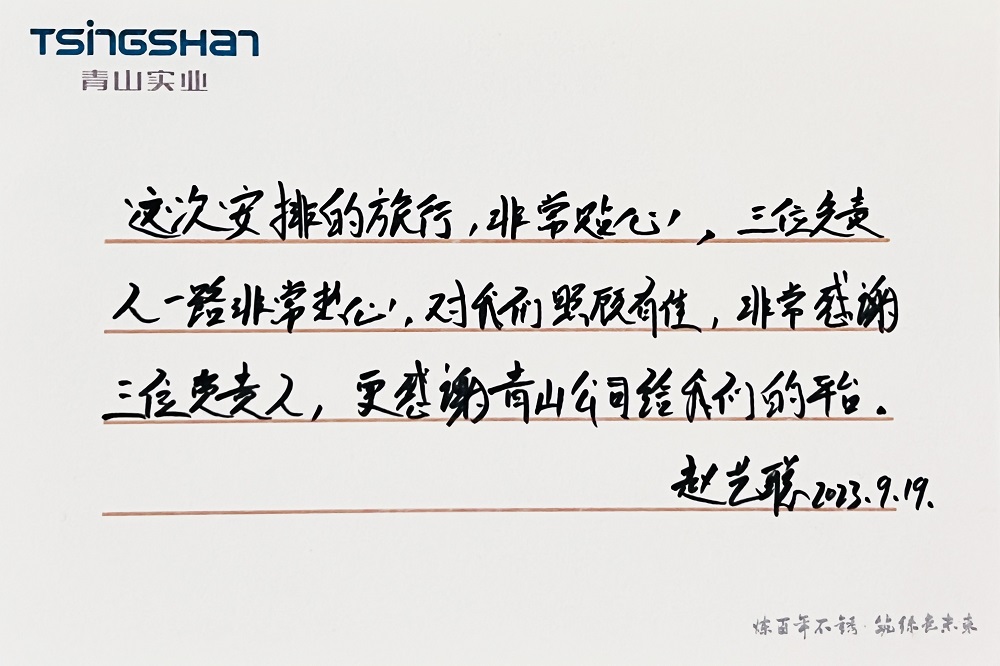 TSINGSHAN
青山实业
这次安排的旅行,非常贴心,三位负责
人一路非常热心,对我们照顾有佳,非常感谢
三位负责人,更感谢青山公司给我们的平台。
赵艺聪2023.9.19.
炼百年不锈·筑绿色未来